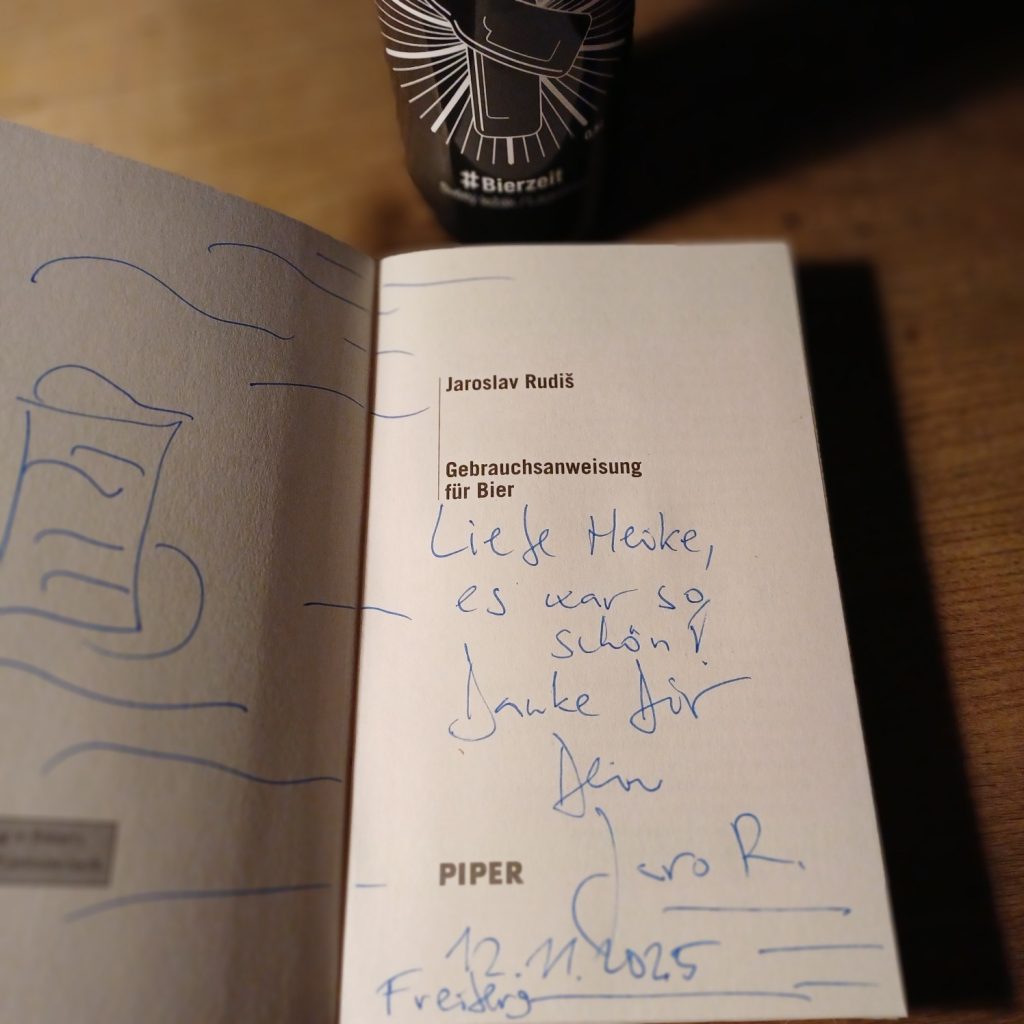 #Bierzeit
Jaroslav Rudiš
Gebrauchsanweisung
für Bier
Liebe Heike,
es war so
schön!
Danke Dir
Dein
Jaro R.
PIPER
12.11.2025
Freiberg